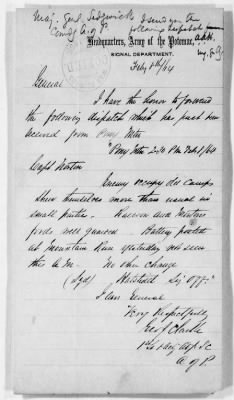 Maj. Genl. Sedgwick I send you the
Comdg A of P. following despatch
Headquarters, Army of the Potomac,
SIGNAL DEPARTMENT.
Feby 8th/64
General
I have the honor to forward
the following dispatch which has just been
received from Pony Mtn
"Pony Mtn 2.30 PM Feb 8/64
Capt Norton
Enemy occupy old camps
Shew themselves more than usual in
small parties. Raccoon and Mortons
fords well guarded. Battery posted
at Mountain Run yesterday not seen
this A.M. No other change
(Sgd) Sig Off."
I am General
Very Respectfully
Geo J Clarke
1st Lt
A of P.